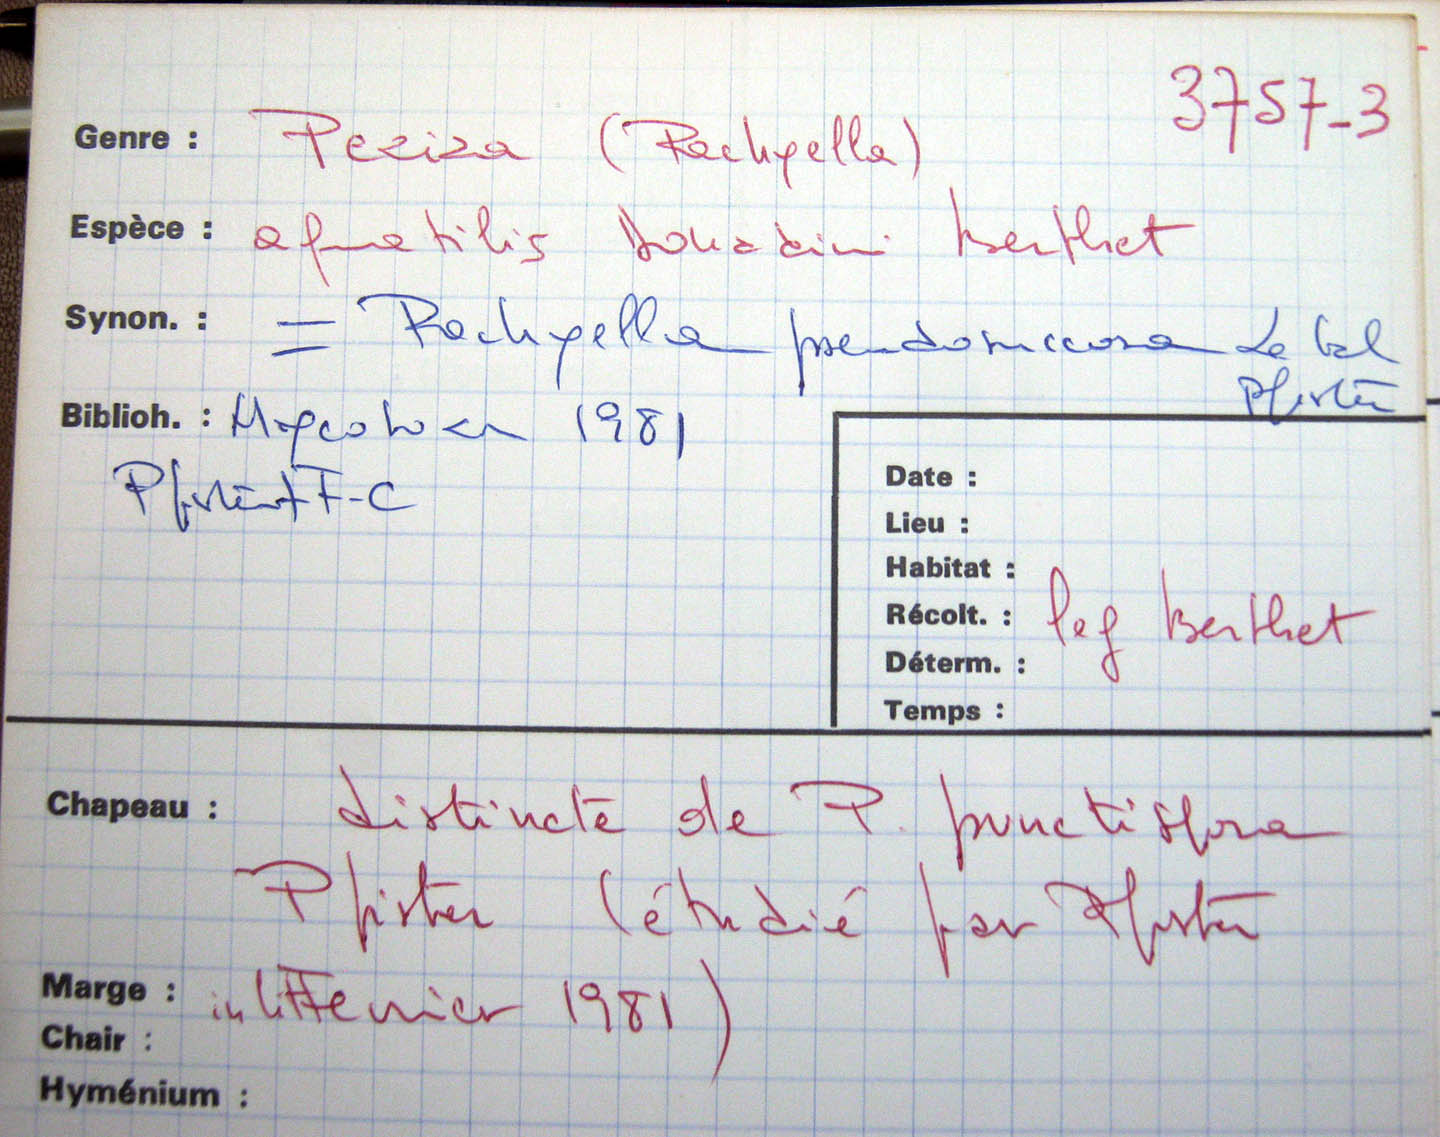 3757-3
Genre : Peziza (Pachyella)
Espèce : aquatilis Donadini Berthet
Synon. : = Pachyella pseudosuccosa Le Gal
Pfister
Biblioh. : Mycotaxon 1981
Pfister F-C
Date :
Lieu :
Habitat :
Récolt. : leg Berthet
Déterm. :
Temps :
Chapeau : distincte de P. punctispora
Pfister (étudié par Pfister
Marge : in litt 1981)
Chair :
Hyménium :